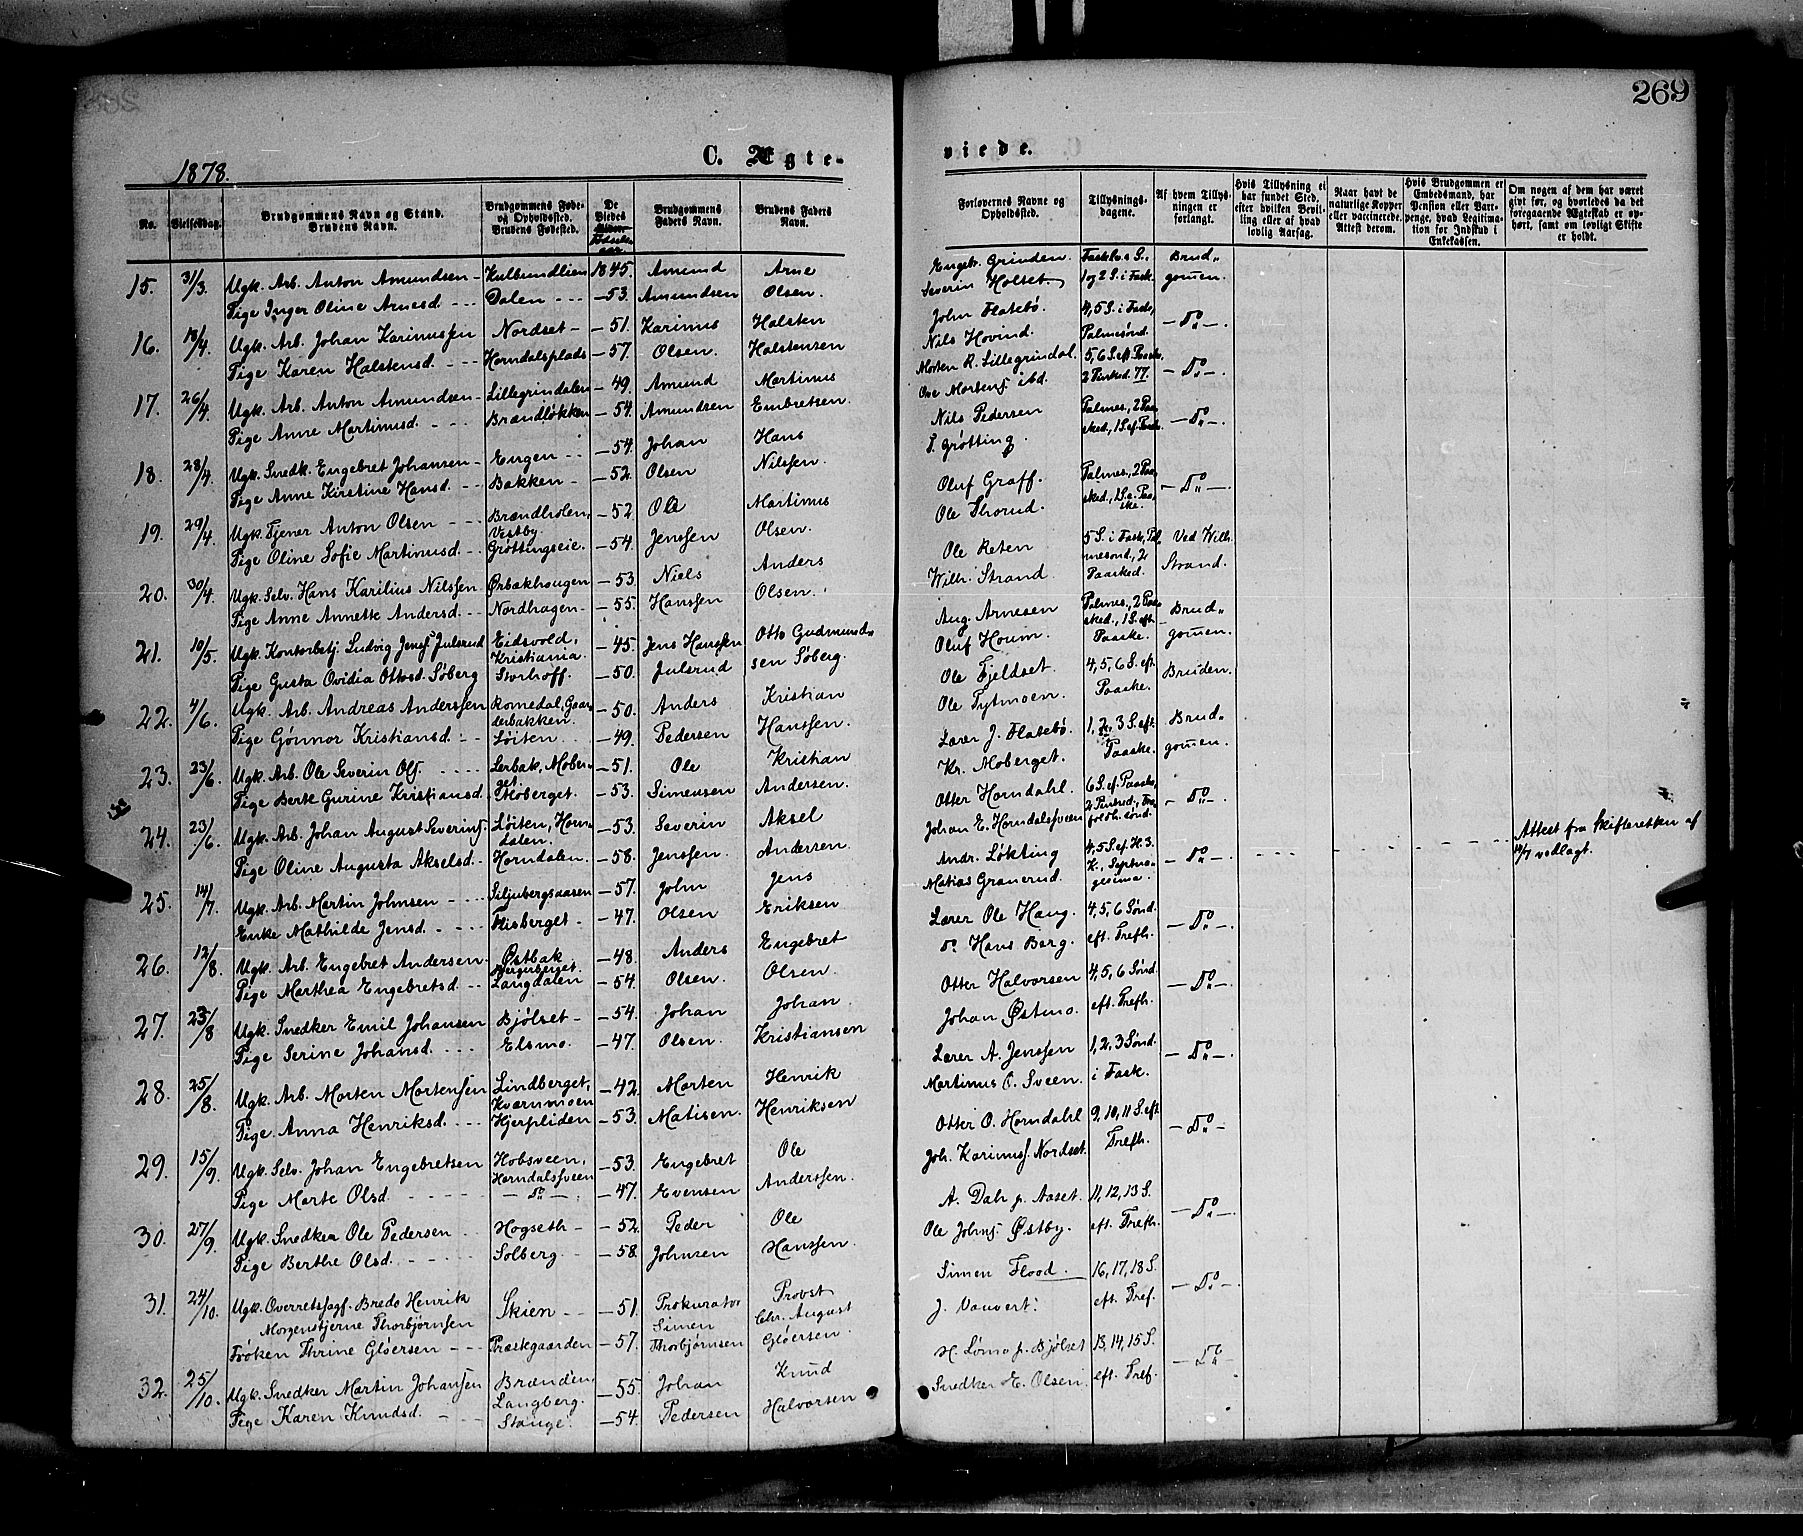 269
1878.
C. Ægte-
viede.
No.
Vielsesdag.
Brudgommens Navn og Stand.
Brudens Navn.
Brudgommens Føde- og Opholdssted.
Brudens Fødested.
De Viedes Fødselsaar
Brudgommens Faders Navn.
Brudens Faders Navn.
Forlovernes Navne og Opholdsted.
Tillysningsdagene.
Af hvem Tillysningen er forlangt.
Hvis Tillysning ei har fundet Sted, efter hvilken Bevilling eller af hvad lovlig Aarsag.
Naar havt de naturlige Kopper eller vaccinerede. Attest derom.
Hvis Brudgommen er Embedsmand, har Pension eller Vartpenge, hvad Legitimation for Indskud i Enkekassen.
Om nogen af dem har været gift før, og hvorledes da det foregaaende Ægteskab er ophørt, samt om lovligt Skifte er holdt.
15. 31/3. Ugk. Arb. Anton Amundsen Kulbundlien 1845. Amund Arne
Pige Inger Oline Arnesd. Dalen 53. Amundsen Olsen.
16. 18/4. Ugk. Arb. Johan Karinussen Nordset 51. Karinus Halsten
Pige Karen Halstensd. Horndalsplads 57. Olsen. Halstensen
17. 26/4. Ugk. Arb. Anton Amundsen Lillegrindalen 49. Amund Martinus
Pige Anne Martinusd. Brændløkken 54. Amundsen Embretsen.
18. 28/4. Ugk. Snedk. Engebret Johansen Engen 54. Johan Hans
Pige Anne Kirstine Hansd. Bakken 52. Olsen Nilssen.
19. 29/4. Ugk. Tjener Anton Olsen Brændholen, Vestby 52. Ole Martinus
Pige Oline Sofie Martinusd. Grøttingseie. 54. Jenssen Olsen.
20. 30/4. Ugk. Selv. Hans Karilius Nilssen Ørbakhougen 53. Niels Anders
Pige Anne Annette Andersd. Nordhagen 55. Hanssen Olsen.
21. 10/5. Ugk. Kontorbetj. Ludvig Jenss. Julsrud Eidsvold, Kristiania. 45. Jens Hanssen Otto Gudmund-
Pige Gusta Ovidia Ottosd. Søberg Storhoff. 50. Julsrud sen Søberg.
22. 4/6. Ugk. Arb. Andreas Anderssen Romedal, Gaarderbakken. 50. Anders Kristian
Pige Gønnor Kristiansd. Løiten. 49. Pedersen Hanssen.
23. 23/6. Ugk. Arb. Ole Severin Ols. Lerbak, Moberget. 51. Ole Kristian
Pige Berte Gurine Kristiansd. Moberget. 53. Simensen Andersen.
24. 23/6. Ugk. Arb. Johan August Severins. Løiten, Horndalen. 53. Severin Aksel
Pige Oline Augusta Akselsd. Horndalen. 58. Jenssen. Andersen.
25. 14/7. Ugk. Arb. Martin Johnsen Siljubergsaasen 57. John Jens
Enke Mathilde Jensd. Flisberget. 47. Olsen Eriksen
26. 12/8. Ugk. Arb. Engebret Andersen Østbak 48. Anders Engebret
Pige Marthea Engebretsd. Langdalen 54. Olsen. Olsen.
27. 23/8 Ugk. Snedker Emil Johansen Bjølset 54. Johan Johan.
Pige Serine Johansd. Elsmo. 47. Olsen. Kristiansen
28. 25/8. Ugk. Arb. Morten Mortensen Lindberget, Kværnmoen 42. Morten Henrik
Pige Anna Henriksd. Hjerpliden 53. Matisen. Henriksen
29. 15/9. Ugk. Selv. Johan Engebretsen Hobsveen, Horndalssveen 53. Engebret Ole
Pige Marte Olsd. do 47. Evensen Anderssen.
30. 27/9. Ugk. Snedker Ole Pedersen Hogseth 52. Peder Ole
Pige Berthe Olsd. Solberg. 58. Johnsen Hanssen.
31. 24/10. Ugk. Overretssagf. Bredo Henrik Morgenstjerne Thorbjørnsen Skien 51. Prokurator Simen Provst Chr. August
Frøken Thrine Gløersen Præstgaarden 57. Thorbjørnsen Gløersen.
32. 25/10. Ugk. Snedker Martin Johansen Brænden, Langberg. 55. Johan Knud
Pige Karen Knudsd. Stange. 54. Pedersen Halvorsen
Engebr. Grinden. Fastel. S. Brud-
Severin Holset. 1 og 2 S. i Fask. gommen.
John Flatebø. 4, 5 S. i Faste, do
Nils Hovind. Palmesønd.
Morten R. Lillegrindal. 5, 6 S. eft. Paaske, do
Ove Mortens. ibd. 2 Pinsed.
Nils Pedersen Palmes., 2 Paasked., 1 S. ef. Paask. do
S. Grøtting.
Oluf Graff. Palmes., 2 Paasked., 1 S. e. Paaske. do
Ole Thorud.
Ole Reten 5 S. i Fask, Palmesønd., 2 Paasked. Ved Wilh.
Wilh. Strand. Strand.
Aug. Arnesen Palmes., 2 Paasked., 1 S. eft. Paaske. Brud-
Oluf Houm. gommen.
Ole Fjeldset. 4, 5, 6 S. eft. Paaske. Bruden.
Ole Tytmoen.
Lærer J. Flatebø. 1, 2, 3 S. eft. Paaske. Brud-
Kr. Moberget. gommen.
Otter Horndahl. 6 S. ef. Paaske, 2 Pinsed., Trefoldh. sønd. do
Johan E. Horndalssveen
Andr. Løkting 4, 5 S. ef. H. 3. K., Septuagesima. do
Matias Granerud.
Attest fra Skifteretten af
14/7 vedlagt.
Lærer Ole Haug. 4, 5, 6 Sønd. eft. Trefh. do
do Hans Berg.
Otter Halvorsen 4, 5, 6 Sønd. eft. Trefh. do
Johan Østmo.
Lærer A. Jenssen 1, 2, 3 Sønd. i Fask. do
Martinus O. Sveen.
Otter O. Horndahl 9, 10, 11 S. eft. Trefh. do
Joh. Karinuss. Nordset.
A. Dahl p. Aaset. 11, 12, 13 S. eft. Trefh. do
Ole Johns. Østby.
Simen Flood. 16, 17, 18 S. eft. Tref. do
J. Vauvert.
H. Lømo p. Bjølset 13, 14, 15 S. eft. Tref. do
Snedker E. Olsen.